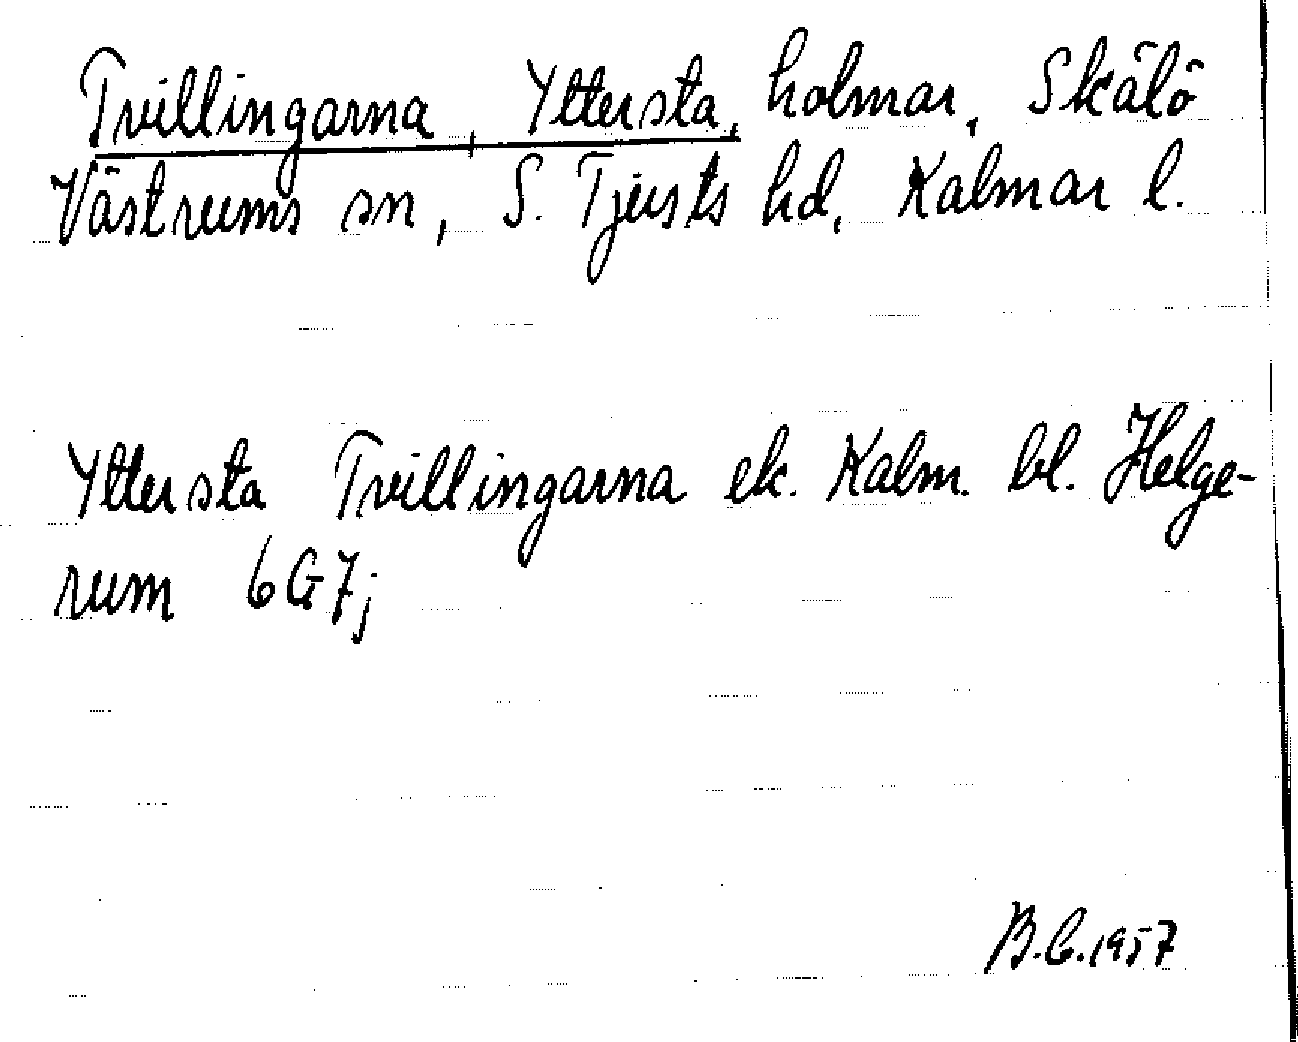 Tvillingarna, Yttersta, holmar, Skälö
Västrums sn, S. Tjusts hd, Kalmar l.
Yttersta Tvillingarna ek. Kalm. bl. Helge-
rum 6G7j
B.C.1957